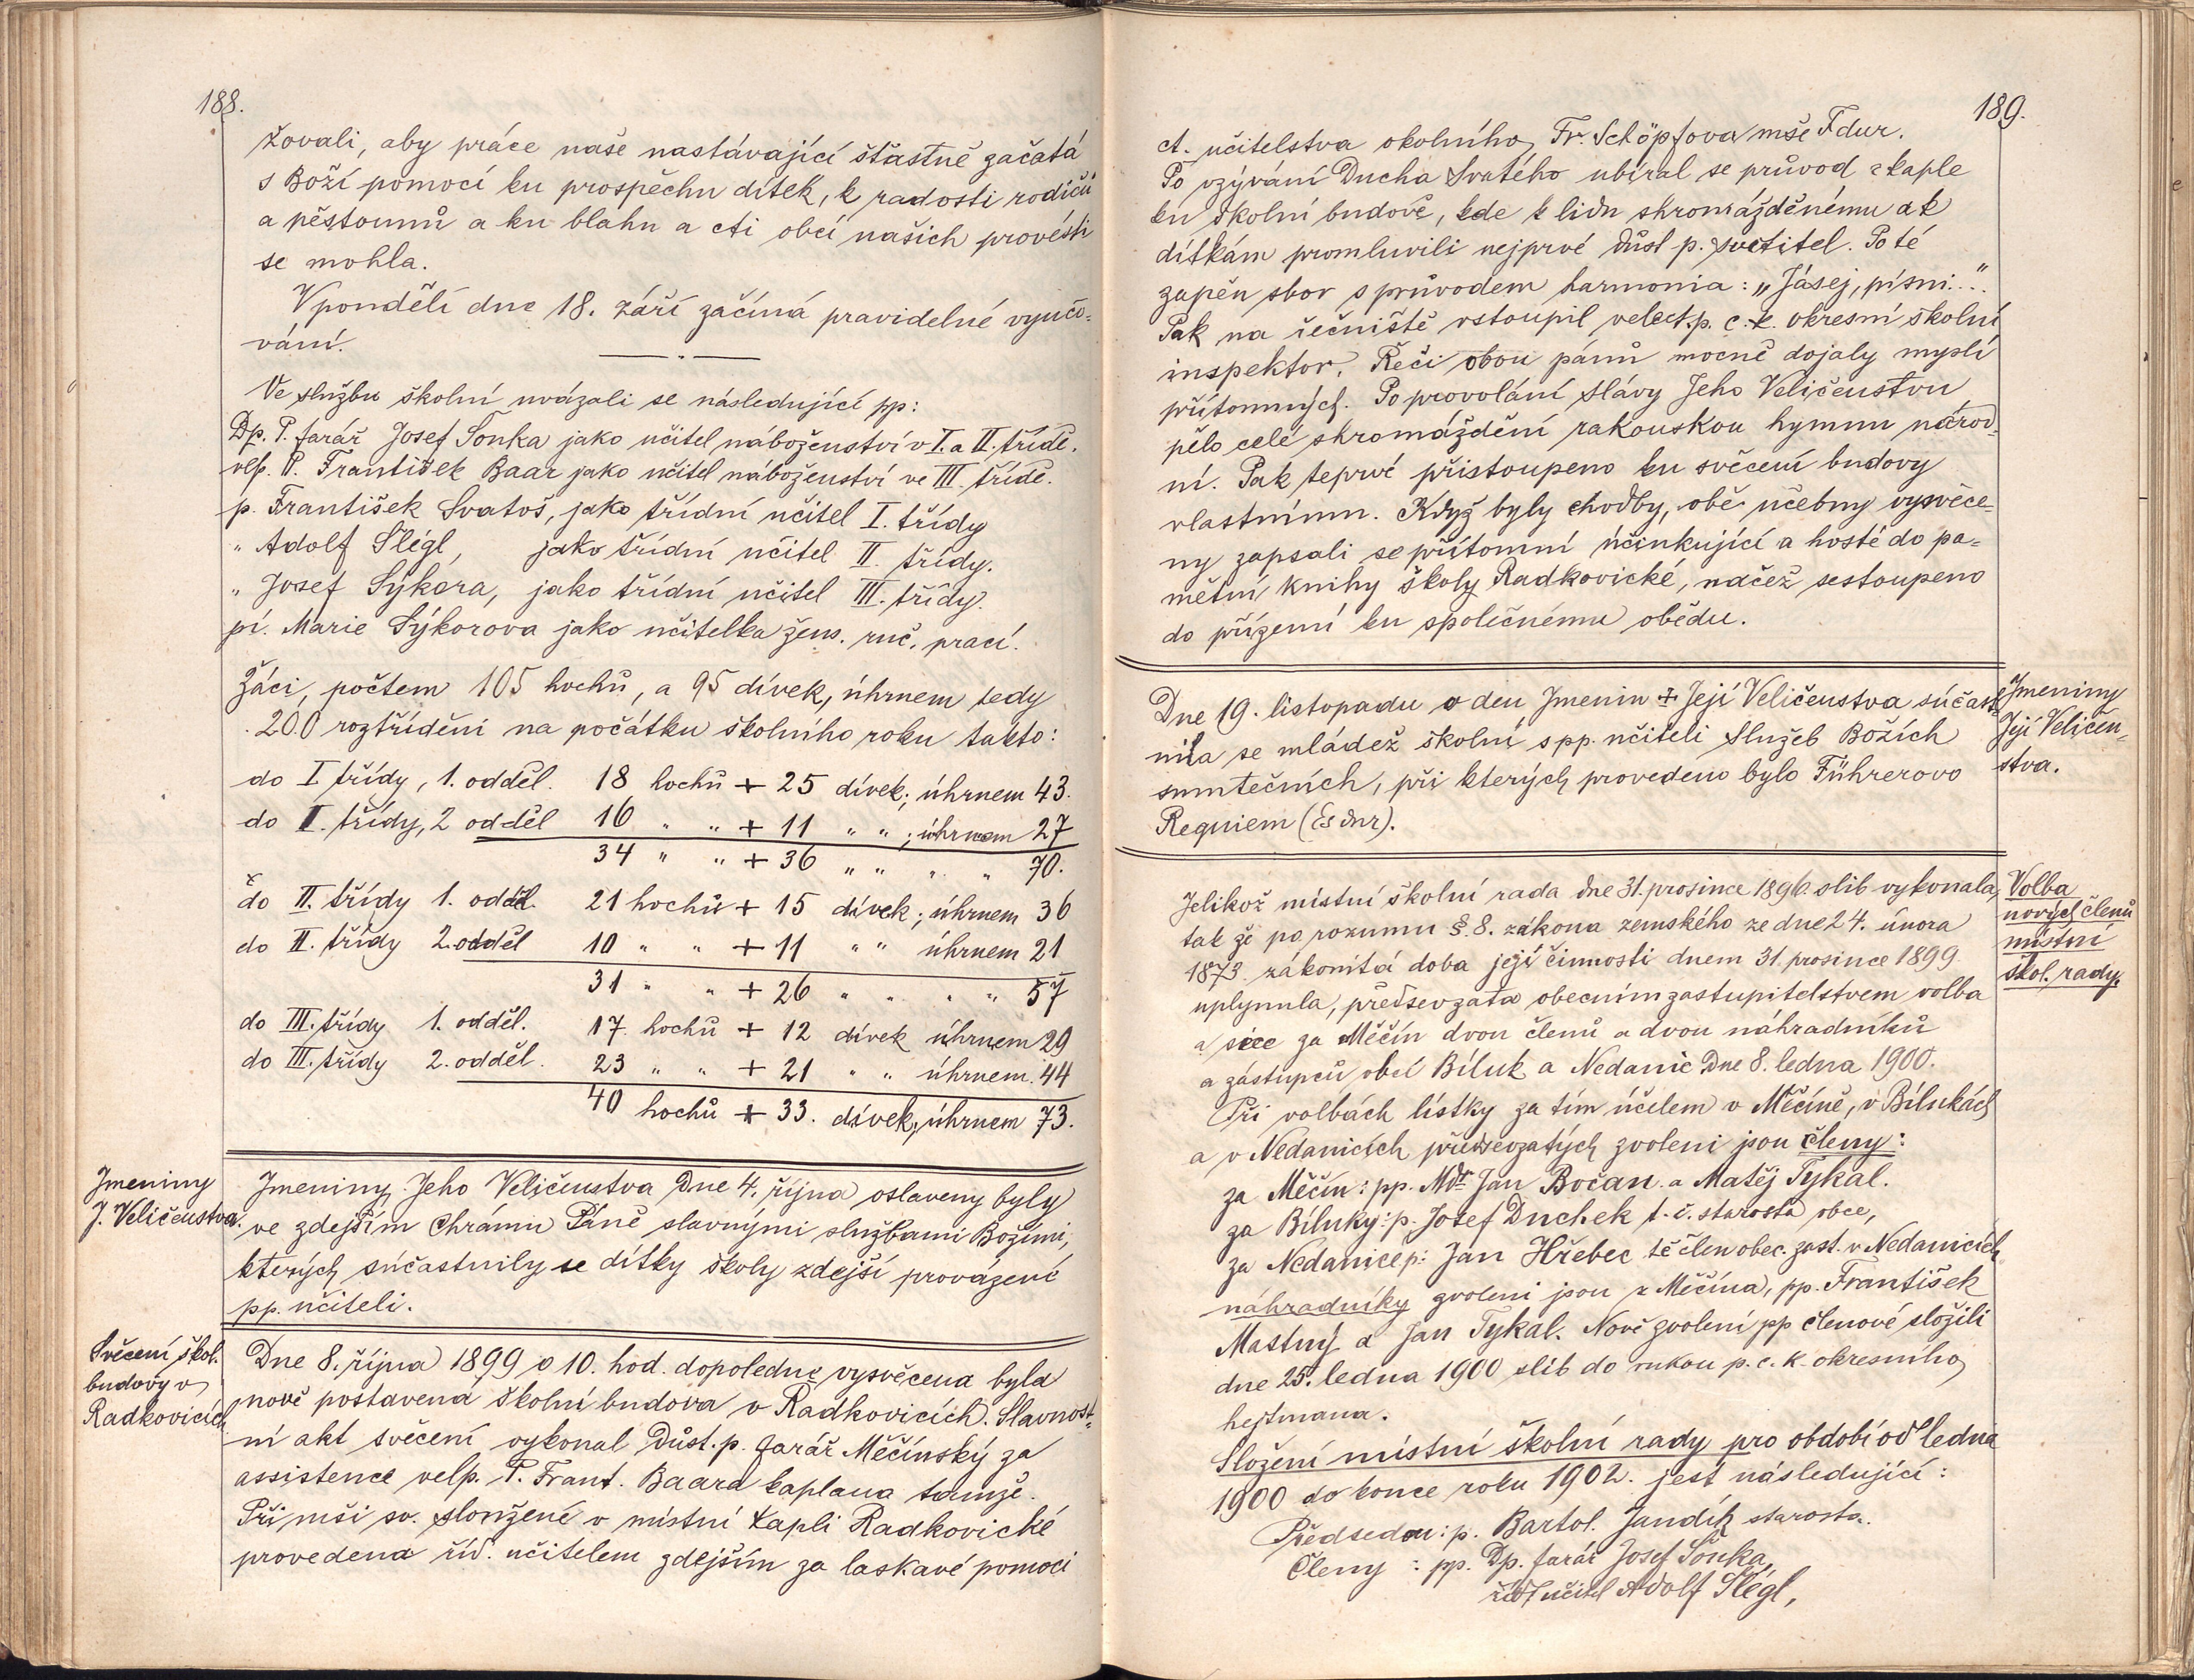 188.
žovali, aby práce naše nastávající šťastně začatá
s Boží pomocí ku prospěchu dítek, k radosti rodičů
a pěstounů a ku blahu a cti obcí našich provésti
se mohla.
V pondělí dne 18. září začíná pravidelné vyučo=
vání.
Ve službu školní uvázali se následující pp:
Dp. P. farář Josef Šonka jako učitel náboženství v I. a II. třídě.
vlp. P. František Baar jako učitel náboženství ve III. třídě.
p. František Svatoš, jako třídní učitel I. třídy
" Adolf Šlégl, jako třídní učitel II. třídy.
" Josef Sýkora, jako třídní učitel III. třídy.
pí. Marie Sýkorova jako učitelka žens. ruč. prací.
Žáci, počtem 105 hochů, a 95 dívek, úhrnem tedy
200 roztřídění na počátku školního roku takto:
do I třídy, 1. odděl. 18 hochů + 25 dívek; úhrnem 43.
do I. třídy, 2 odděl 16 " " + 11 " "; úhrnem 27
34 " " + 36 " " " " 70.
do II. třídy 1. odděl. 21 hochů + 15 dívek; úhrnem 36
do II. třídy 2. odděl 10 " " + 11 " " úhrnem 21
31 " " + 26 " " " " 57
do III. třídy 1. odděl. 17 hochů + 12 dívek úhrnem 29
do III. třídy 2. odděl. 23 " " + 21 " " úhrnem 44
40 hochů + 33. dívek, úhrnem 73.
Jmeniny
J. Veličenstva.
Jmeniny Jeho Veličenstva dne 4. října oslaveny byly
ve zdejším chrámu Páně slavnými službami Božími,
kterých súčastnily se dítky školy zdejší provázené
pp. učiteli.
Svěcení škol.
budovy v
Radkovicích
Dne 8. října 1899 o 10. hod. dopoledne vysvěcena byla
nově postavena školní budova v Radkovicích. Slavnost=
ní akt svěcení vykonal Důst. p. farář Měčínský za
assistence velp. P. Frant. Baara kaplana tamže.
Při mši sv. sloužené v místní kapli Radkovické
provedena říd. učitelem zdejším za laskavé pomoci
189.
ct. učitelstva okolního Fr. Schöpfova mše F dur.
Po vzývání Ducha Svatého ubíral se průvod z kaple
ku školní budově, kde k lidu shromážděnému a k
dítkám promluvili nejprvé důst p. světitel. Poté
zapěn sbor s průvodem harmonia: „Jásej, písni..."
Pak na řečniště vstoupil velect. p. c. k. okresní školní
inspektor. Řeči obou pánů mocně dojaly myslí
přítomných. Po provolání slávy Jeho Veličenstvu
pělo celé shromáždění rakouskou hymnu národ=
ní. Pak teprvé přistoupeno ku svěcení budovy
vlastnímu. Když byly chodby, obě učebny vysvěce=
ny zapsali se přítomní účinkující a hosté do pa=
mětní knihy školy Radkovické, načež sestoupeno
do přízemí ku společnému obědu.
Dne 19. listopadu o den Jmenin + Její Veličenstva súčast=
nila se mládež školní s pp. učiteli Služeb Božích
smutečních, při kterých provedeno bylo Führerovo
Requiem (Es dur).
Jmeniny
Její Veličen=
stva.
Jelikož místní školní rada dne 31. prosince 1896 slib vykonala,
tak že po rozumu §. 8. zákona zemského ze dne 24. února
1873 zákonitá doba její činnosti dnem 31. prosince 1899
uplynula, předsevzata obecním zastupitelstvem volba
a sice za Měčín dvou členů a dvou náhradníků
a zástupců obcí Bíluk a Nedanic dne 8. ledna 1900.
Při volbách lístky za tím účelem v Měčíně, v Bílukách
a v Nedanicích předsevzatých zvoleni jsou členy:
za Měčín: pp. MDr Jan Bočan a Matěj Tykal.
za Bíluky: p. Josef Duchek t. č. starosta obce,
za Nedanice p: Jan Hřebec tč člen obec. zast. v Nedanicích
náhradníky zvoleni jsou z Měčína, pp. František
Mastný a Jan Tykal. Nově zvolení pp členové složili
dne 25. ledna 1900 slib do rukou p. c. k. okresního
hejtmana.
Volba
nových členů
místní
škol. rady.
Složení místní školní rady pro období od ledna
1900 do konce roku 1902. jest následující:
Předsedou: p. Bartol. Jandík starosta.
Členy: pp. Dp. farář Josef Šonka,
říd učitel Adolf Šlégl,